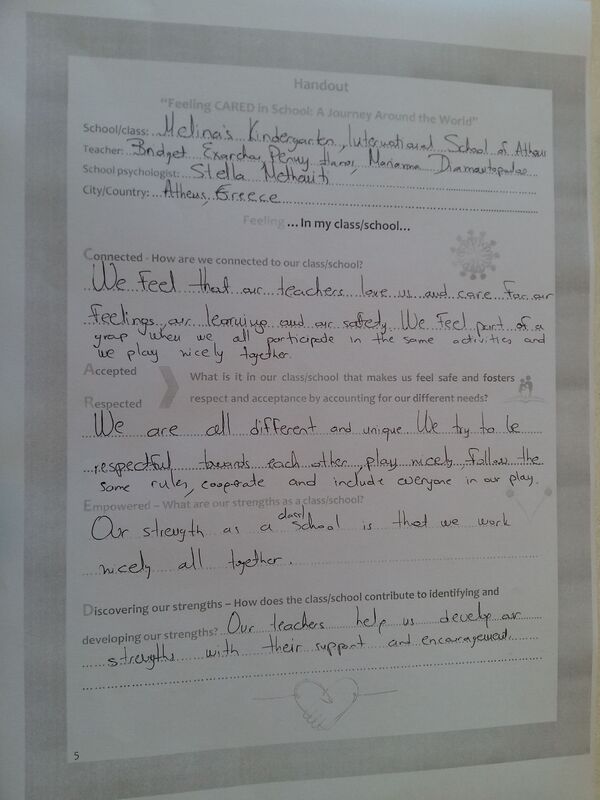 Handout
"Feeling CARED in School: A Journey Around the World"
School/class: Melina's Kindergarten, International School of Athens
Teacher: Bridget Exarchou, Penny Hanos, Marianna Diamantopoulou
School psychologist: Stella Methauiti
City/Country: Athens, Greece
Feeling ... In my class/school...
Connected - How are we connected to our class/school?
We feel that our teachers love us and care for our
feelings, our learning and our safety. We feel part of a
group when we all participate in the same activities and
we play nicely together.
Accepted
What is it in our class/school that makes us feel safe and fosters
Respected
respect and acceptance by accounting for our different needs?
We are all different and unique We try to be
respectful towards each other, play nicely, follow the
same rules, cooperate and include everyone in our play.
Empowered – What are our strengths as a class/school?
Our strength as a class/school is that we work
nicely all together.
Discovering our strengths – How does the class/school contribute to identifying and
developing our strengths? Our teachers help us develop our
strengths with their support and encouragement
5